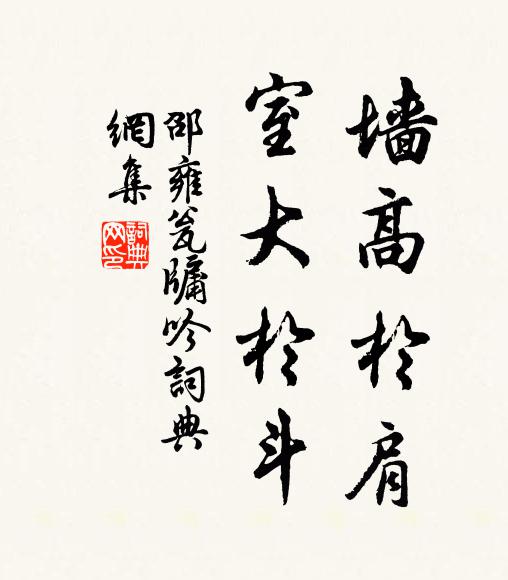 墙高於肩
室大於斗
邵雍瓮牖吟詞典
網集
詞典网印